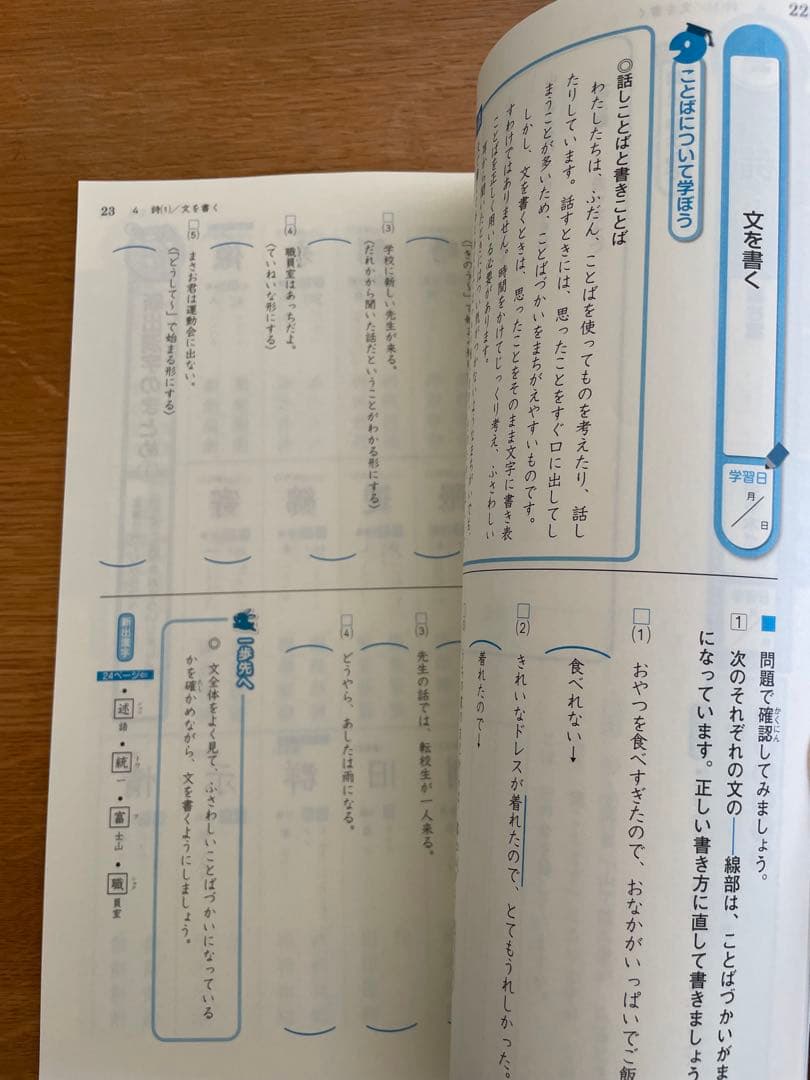 22
文を書く
学習日
月/日
ことばについて学ぼう
◎話しことばと書きことば
わたしたちは、ふだん、ことばを使ってものを考えたり、話し
たりしています。話すときには、思ったことをすぐ口に出してし
まうことが多いため、ことばづかいをまちがえやすいものです。
しかし、文を書くときは、思ったことをそのまま文字に書き表
すわけではありません。時間をかけてじっくり考え、ふさわしい
ことばを正しく用いる必要があります。
■問題で確認してみましょう。
かくにん
1 次のそれぞれの文の──線部は、ことばづかいがま
になっています。正しい書き方に直して書きましょう
□(1) おやつを食べすぎたので、おなかがいっぱいでご飯
食べれない→
□(2) きれいなドレスが着れたので、とてもうれしかった。
着れたので→
23 4 詩(1)/文を書く
□(3) 学校に新しい先生が来る。
(だれかから聞いた話だということがわかる形にする)
□(4) 職員室はあっちだよ。
(ていねいな形にする)
□(5) まさお君は運動会に出ない。
(「どうして〜」で始まる形にする)
□(3) 先生の話では、転校生が一人来る。
□(4) どうやら、あしたは雨になる。
一歩先へ
◎ 文全体をよく見て、ふさわしいことばづかいになっている
かを確かめながら、文を書くようにしましょう。
新出漢字
24ページ
・述語 ・統一 ・富士山 ・職員室